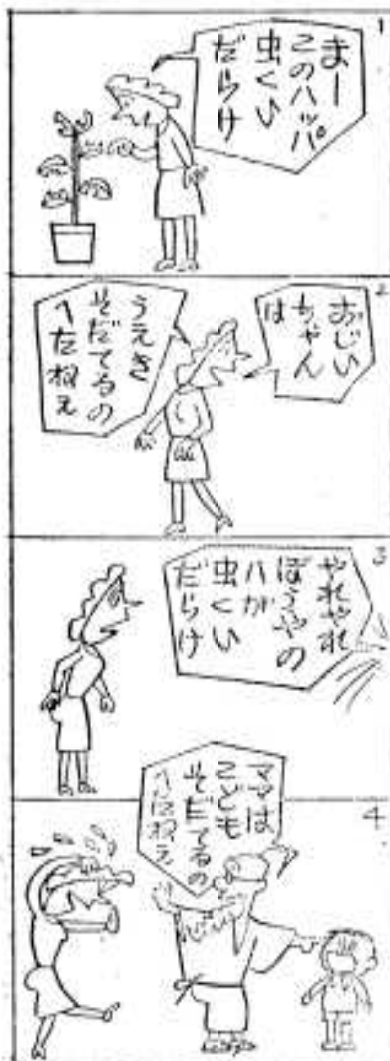 1
まー
このハッパ
虫くい
だらけ
2
おじい
ちゃん
は
うえき
そだてるの
へたねぇ
3
やれやれ
ぼうやの
ハが
虫くい
だらけ
4
ママは
こども
そだてるの
へたねぇ